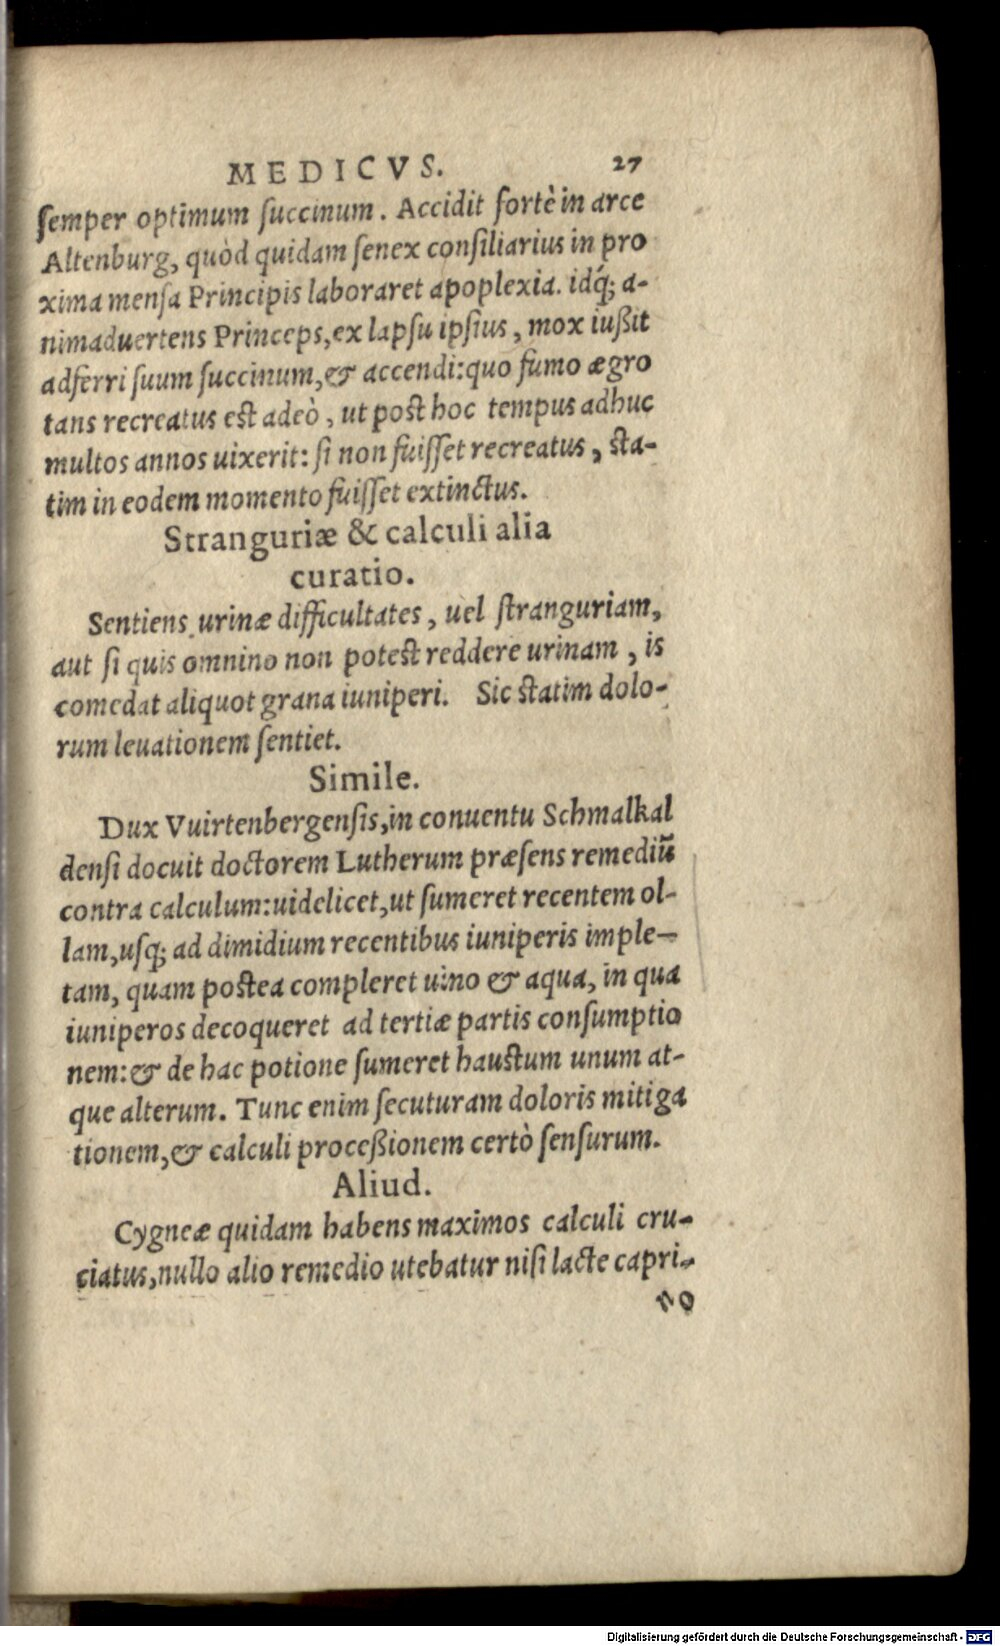 MEDICVS. 27
ſemper optimum ſuccinum. Accidit fortè in arce
Altenburg, quòd quidam ſenex conſiliarius in pro
xima menſa Principis laboraret apoplexia. idq́; a-
nimaduertens Princeps, ex lapſu ipſius, mox iußit
adferri ſuum ſuccinum, & accendi: quo fumo ægro
tans recreatus est adeò, ut post hoc tempus adhuc
multos annos uixerit: ſi non fuiſſet recreatus, sta-
tim in eodem momento fuiſſet extinctus.
Stranguriæ & calculi alia
curatio.
Sentiens urinæ difficultates, uel ſtranguriam,
aut ſi quis omnino non potest reddere urinam, is
comedat aliquot grana iuniperi. Sic statim dolo-
rum leuationem ſentiet.
Simile.
Dux Vuirtenbergenſis, in conuentu Schmalkal
denſi docuit doctorem Lutherum præſens remediũ
contra calculum: uidelicet, ut ſumeret recentem ol-
lam, uſq; ad dimidium recentibus iuniperis imple-
tam, quam postea compleret uino & aqua, in qua
iuniperos decoqueret ad tertiæ partis conſumptio
nem: & de hac potione ſumeret haustum unum at-
que alterum. Tunc enim ſecuturam doloris mitiga
tionem, & calculi proceßionem certò ſenſurum.
Aliud.
Cygneæ quidam habens maximos calculi cru-
ciatus, nullo alio remedio utebatur niſi lacte capri-
no
Digitalisierung gefördert durch die Deutsche Forschungsgemeinschaft - DFG